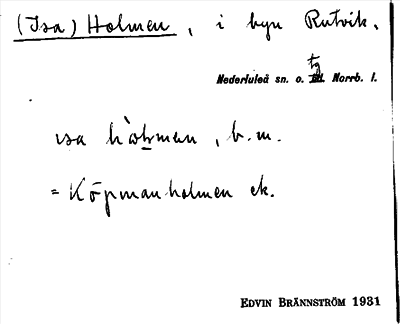 (Isa) Holmen, i byn Rutvik,
Nederluleå sn. o. tg Norrb. l.
ɩsa hòl̠men, b.m.
= Köpmanholmen ek.
EDVIN BRÄNNSTRÖM 1931